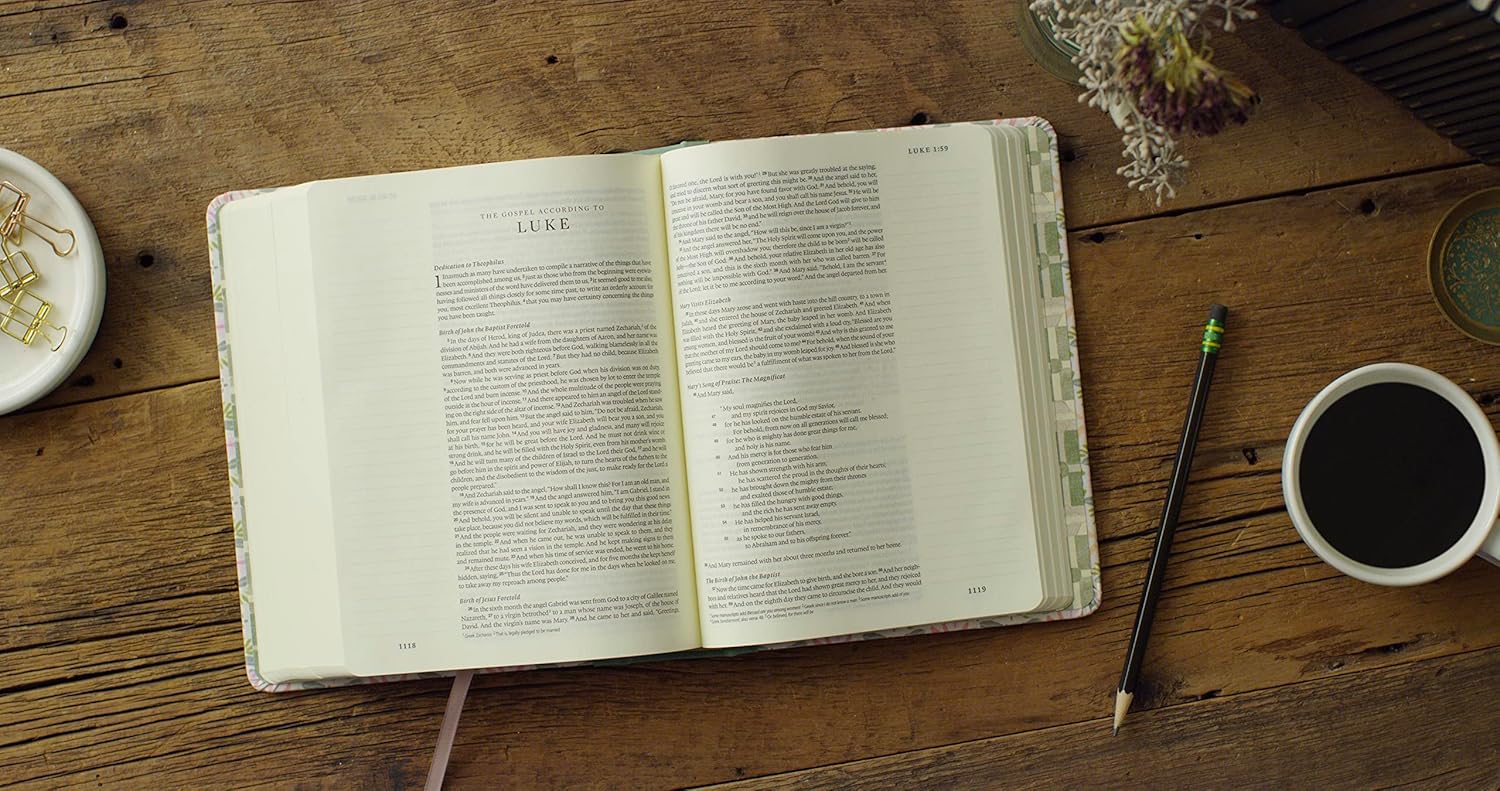 THE GOSPEL ACCORDING TO
LUKE
Dedication to Theophilus
1 Inasmuch as many have undertaken to compile a narrative of the things that have
been accomplished among us, ²just as those who from the beginning were eyewit-
nesses and ministers of the word have delivered them to us, ³it seemed good to me also,
having followed all things closely for some time past, to write an orderly account for
you, most excellent Theophilus, ⁴that you may have certainty concerning the things
you have been taught.
Birth of John the Baptist Foretold
⁵In the days of Herod, king of Judea, there was a priest named Zechariah,¹ of the
division of Abijah. And he had a wife from the daughters of Aaron, and her name was
Elizabeth. ⁶And they were both righteous before God, walking blamelessly in all the
commandments and statutes of the Lord. ⁷But they had no child, because Elizabeth
was barren, and both were advanced in years.
⁸Now while he was serving as priest before God when his division was on duty,
⁹according to the custom of the priesthood, he was chosen by lot to enter the temple
of the Lord and burn incense. ¹⁰And the whole multitude of the people were praying
outside at the hour of incense. ¹¹And there appeared to him an angel of the Lord stand-
ing on the right side of the altar of incense. ¹²And Zechariah was troubled when he saw
him, and fear fell upon him. ¹³But the angel said to him, "Do not be afraid, Zechariah,
for your prayer has been heard, and your wife Elizabeth will bear you a son, and you
shall call his name John. ¹⁴And you will have joy and gladness, and many will rejoice
at his birth, ¹⁵for he will be great before the Lord. And he must not drink wine or
strong drink, and he will be filled with the Holy Spirit, even from his mother's womb.
¹⁶And he will turn many of the children of Israel to the Lord their God, ¹⁷and he will
go before him in the spirit and power of Elijah, to turn the hearts of the fathers to the
children, and the disobedient to the wisdom of the just, to make ready for the Lord a
people prepared."
¹⁸And Zechariah said to the angel, "How shall I know this? For I am an old man, and
my wife is advanced in years." ¹⁹And the angel answered him, "I am Gabriel. I stand in
the presence of God, and I was sent to speak to you and to bring you this good news.
²⁰And behold, you will be silent and unable to speak until the day that these things
take place, because you did not believe my words, which will be fulfilled in their time."
²¹And the people were waiting for Zechariah, and they were wondering at his delay
in the temple. ²²And when he came out, he was unable to speak to them, and they
realized that he had seen a vision in the temple. And he kept making signs to them
and remained mute. ²³And when his time of service was ended, he went to his home.
²⁴After these days his wife Elizabeth conceived, and for five months she kept herself
hidden, saying, ²⁵"Thus the Lord has done for me in the days when he looked on me,
to take away my reproach among people."
Birth of Jesus Foretold
²⁶In the sixth month the angel Gabriel was sent from God to a city of Galilee named
Nazareth, ²⁷to a virgin betrothed² to a man whose name was Joseph, of the house of
David. And the virgin's name was Mary. ²⁸And he came to her and said, "Greetings,
¹Greek Zacharias ²That is, legally pledged to be married
1118
LUKE 1:59
O favored one, the Lord is with you!"¹ ²⁹But she was greatly troubled at the saying,
and tried to discern what sort of greeting this might be. ³⁰And the angel said to her,
"Do not be afraid, Mary, for you have found favor with God. ³¹And behold, you will
conceive in your womb and bear a son, and you shall call his name Jesus. ³²He will be
great and will be called the Son of the Most High. And the Lord God will give to him
the throne of his father David, ³³and he will reign over the house of Jacob forever, and
of his kingdom there will be no end."
³⁴And Mary said to the angel, "How will this be, since I am a virgin?"²
³⁵And the angel answered her, "The Holy Spirit will come upon you, and the power
of the Most High will overshadow you; therefore the child to be born³ will be called
holy—the Son of God. ³⁶And behold, your relative Elizabeth in her old age has also
conceived a son, and this is the sixth month with her who was called barren. ³⁷For
nothing will be impossible with God." ³⁸And Mary said, "Behold, I am the servant⁴
of the Lord; let it be to me according to your word." And the angel departed from her.
Mary Visits Elizabeth
³⁹In those days Mary arose and went with haste into the hill country, to a town in
Judah, ⁴⁰and she entered the house of Zechariah and greeted Elizabeth. ⁴¹And when
Elizabeth heard the greeting of Mary, the baby leaped in her womb. And Elizabeth
was filled with the Holy Spirit, ⁴²and she exclaimed with a loud cry, "Blessed are you
among women, and blessed is the fruit of your womb! ⁴³And why is this granted to me
that the mother of my Lord should come to me? ⁴⁴For behold, when the sound of your
greeting came to my ears, the baby in my womb leaped for joy. ⁴⁵And blessed is she who
believed that there would be⁵ a fulfillment of what was spoken to her from the Lord."
Mary's Song of Praise: The Magnificat
⁴⁶And Mary said,
"My soul magnifies the Lord,
47 and my spirit rejoices in God my Savior,
48 for he has looked on the humble estate of his servant.
For behold, from now on all generations will call me blessed;
49 for he who is mighty has done great things for me,
and holy is his name.
50 And his mercy is for those who fear him
from generation to generation.
51 He has shown strength with his arm;
he has scattered the proud in the thoughts of their hearts;
52 he has brought down the mighty from their thrones
and exalted those of humble estate;
53 he has filled the hungry with good things,
and the rich he has sent away empty.
54 He has helped his servant Israel,
in remembrance of his mercy,
55 as he spoke to our fathers,
to Abraham and to his offspring forever."
⁵⁶And Mary remained with her about three months and returned to her home.
The Birth of John the Baptist
⁵⁷Now the time came for Elizabeth to give birth, and she bore a son. ⁵⁸And her neigh-
bors and relatives heard that the Lord had shown great mercy to her, and they rejoiced
with her. ⁵⁹And on the eighth day they came to circumcise the child. And they would
¹Some manuscripts add Blessed are you among women! ²Greek since I do not know a man ³Some manuscripts add of you
⁴Greek bondservant; also verse 48 ⁵Or believed, for there will be
1119